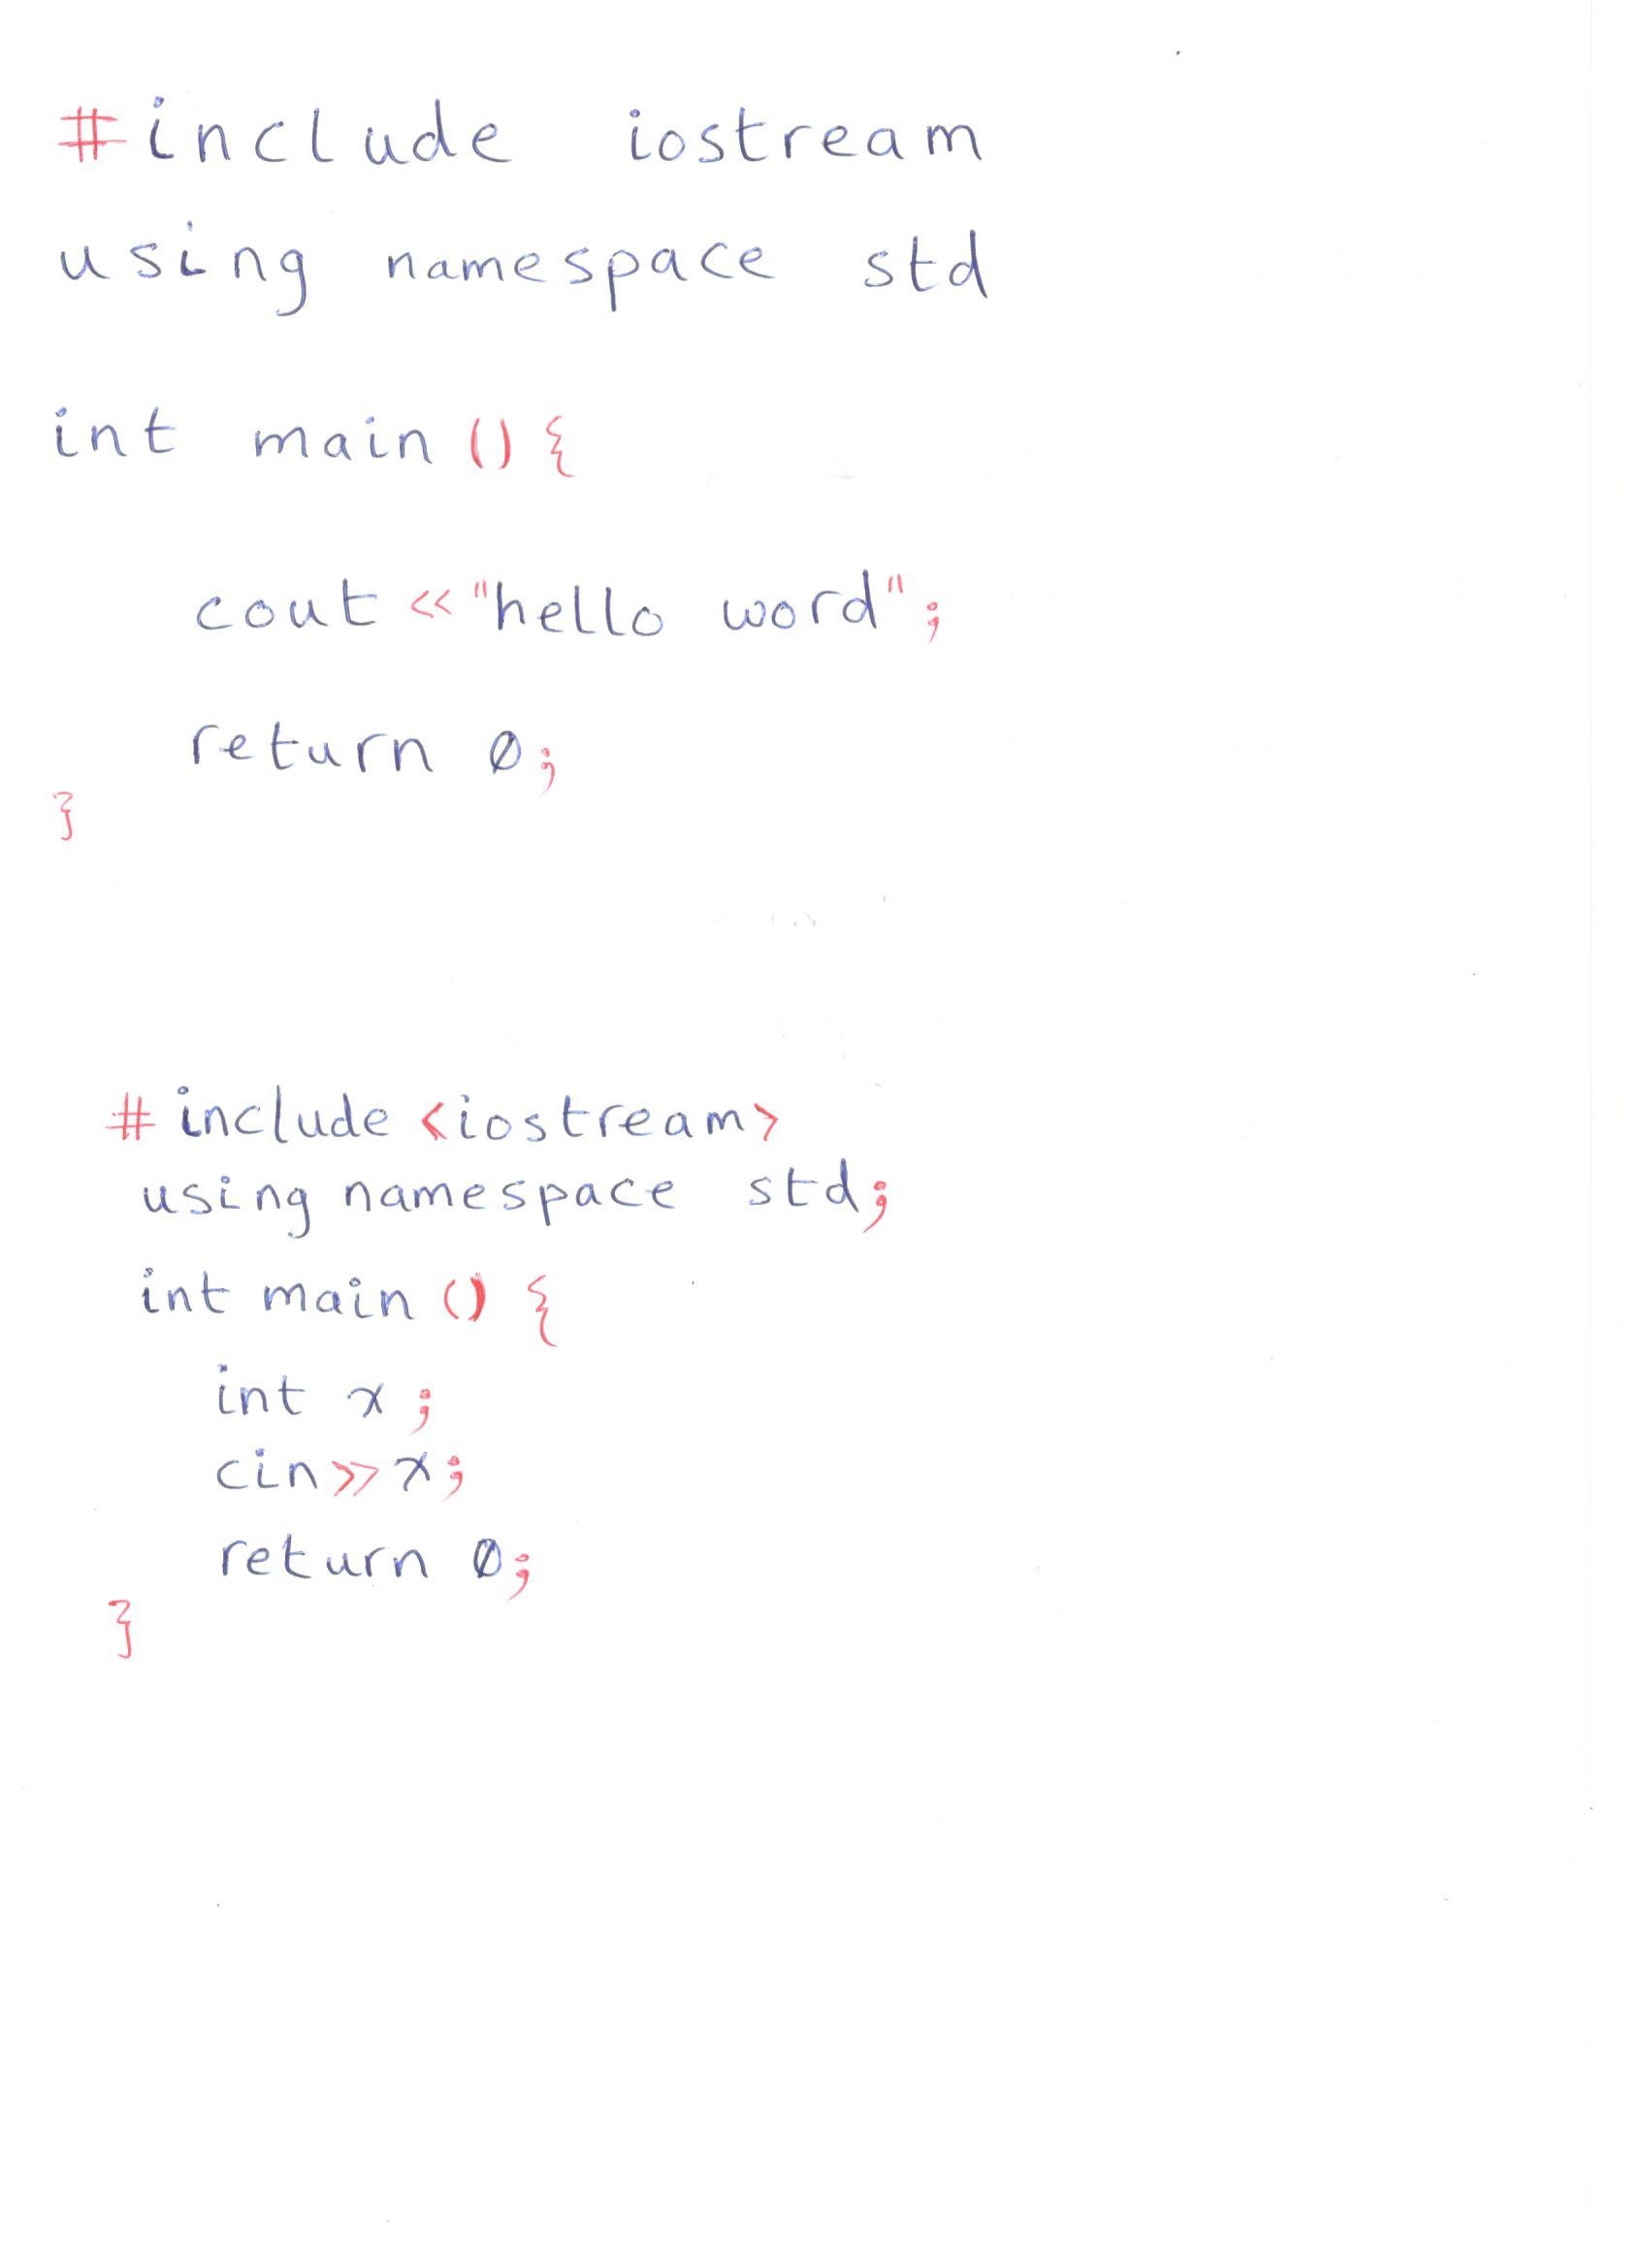 #include iostream
using namespace std
int main () {
cout << "hello word";
return 0;
}
# include <iostream>
using namespace std;
int main () {
int x;
cin >> x;
return 0;
}